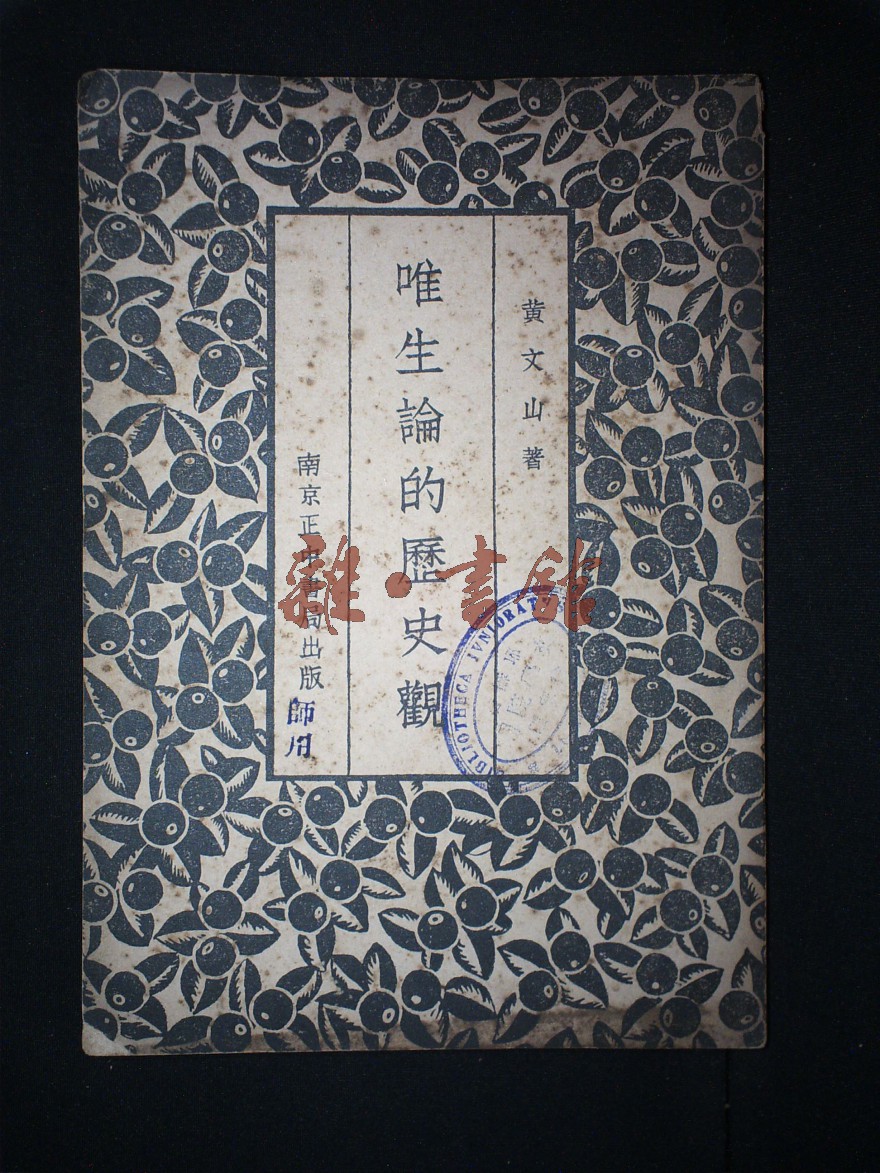 黄文山著
唯生論的歷史觀
南京正中書局出版
師用
雜·書館
BLIOTHECA IVNIORAT